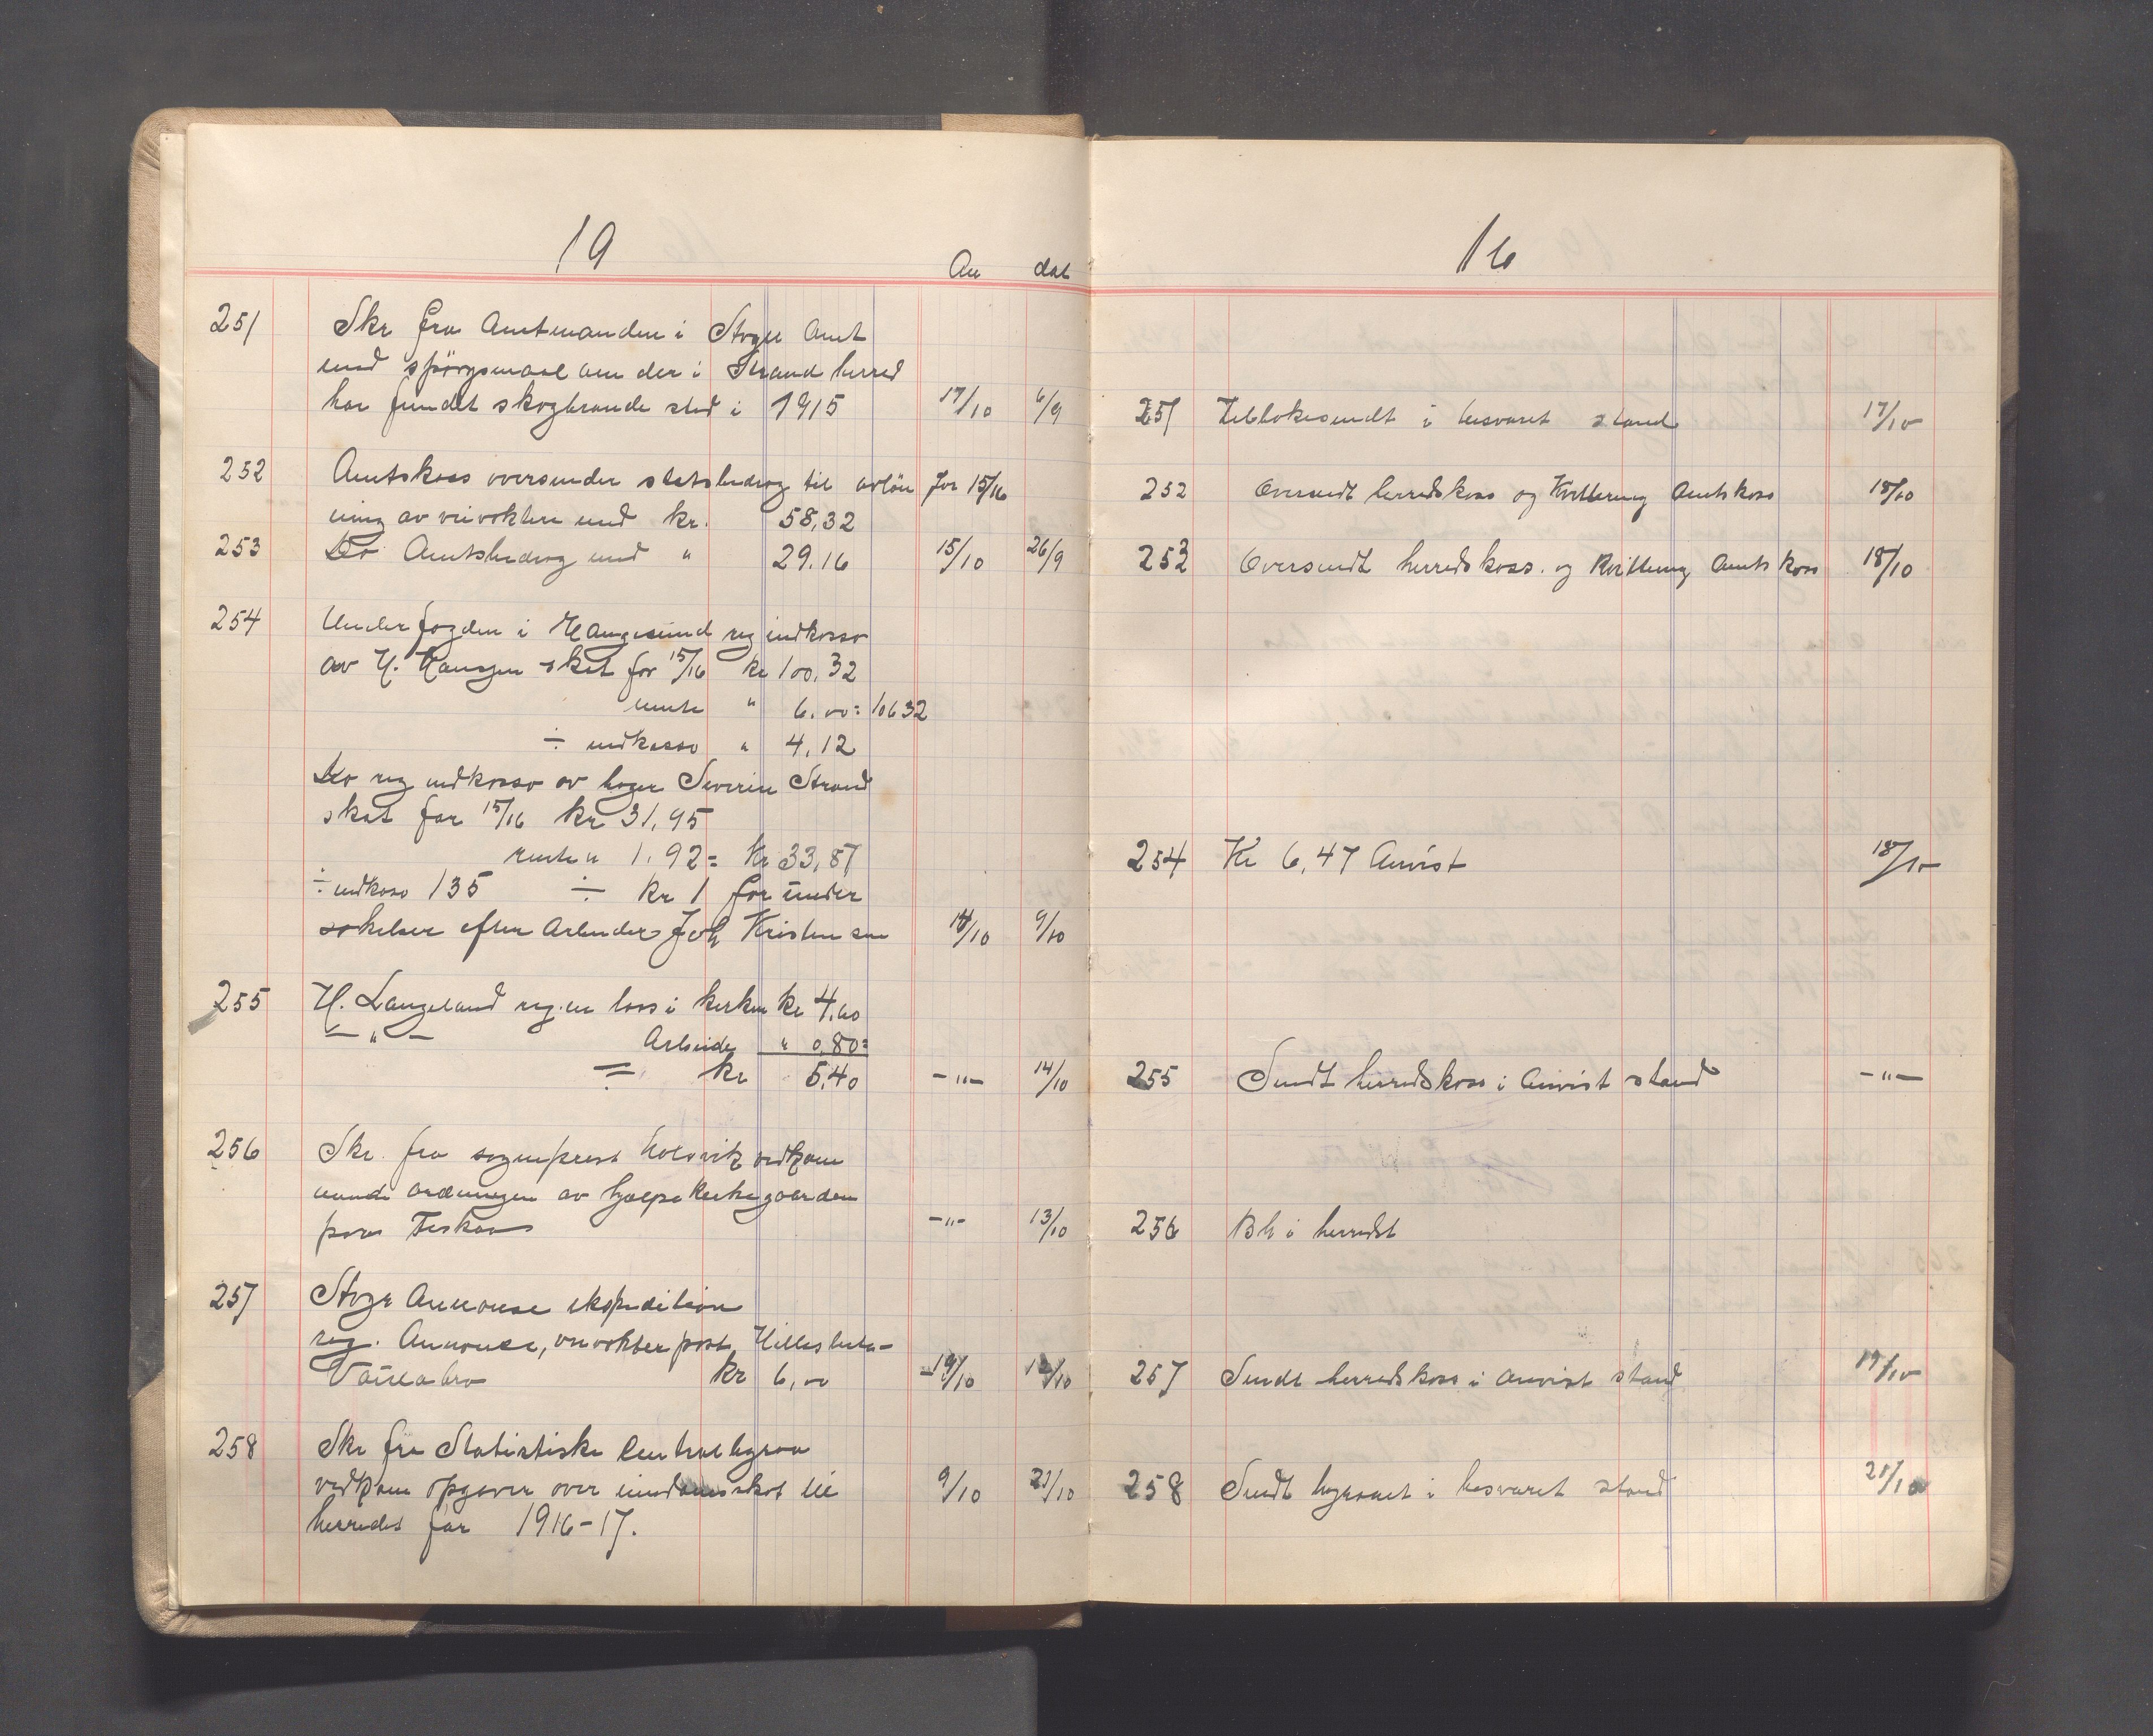 19
An dat
251 Skr fra Amtmanden i Stvgr Amt
med spörgsmaal om der i Strand herred
har fundet skogbrande sted i 1915 17/10 6/9
252 Amtskass oversender statsbidrag til avløn for 15/16
ning av veivoktere med kr. 58,32
253 Do Amtsbidrag med " 29.16 15/10 26/9
254 Underfogden i Haugesund reg indkasso
av H. Hansen skat for 15/16 kr 100,32
rente " 6.00 = 10632
÷ indkasso " 4,12
Do reg indkasso av Severin Strand
skat for 15/16 kr 31,95
rente " 1.92 = Kr 33,87
÷ indkaso 135 ÷ kr 1 for under
søkelser efter Arbeider Joh Kristensen 14/10 9/10
255 H. Langeland reg. en laas i kirken kr 4.60
— " — Arbeide " 0.80 =
= kr 5.40 — " — 14/10
256 Skr. fra sogneprest Kolsvik vedkom
mende ordningen av hjælpekirkegaarden
paa Fiskaa — " — 13/10
257 Stvgr Annonse ekspedition
reg. Annonse, veivokter post Hillesheia-
Vaulabro kr 6,00 19/10 12/10
258 Skr fra Statistiske Centralbyraa
vedkom opgaver over eiendomsskat til
herredet for 1916-17. 9/10 21/10
16
251 Tilbakesendt i besvaret stand 17/10
252 Oversendt herredskass og Kvittering Amtskass 18/10
253 Oversendt herredskass. og Kvittering Amtskass 18/10
254 Kr 6,47 Anvist 18/10
255 Sendt herredskass i Anvist stand — " —
256 Bh i herredst
257 Sendt herredskass i anvist stand 19/10
258 Sendt byraaet i besvaret stand 21/10